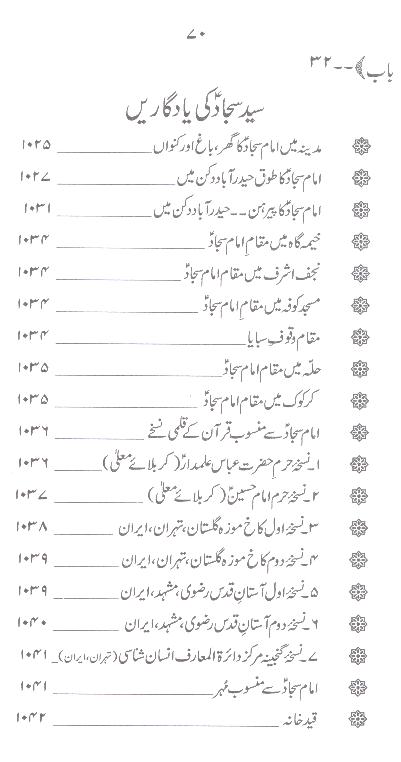 ۷۰
باب ﴾۔۔۔۳۲
سید سجادؑ کی یادگاریں
مدینہ میں امام سجادؑ کا گھر، باغ اور کنواں ۱۰۲۵
امام سجادؑ کا طوق حیدرآباد دکن میں ۱۰۲۷
امام سجادؑ کا پیرہن ۔۔ حیدرآباد دکن میں ۱۰۳۱
خیمہ گاہ میں مقامِ امام سجادؑ ۱۰۳۴
نجف اشرف میں مقام امام سجادؑ ۱۰۳۴
مسجد کوفہ میں مقامِ امام سجادؑ ۱۰۳۴
مقام وقوفِ سبایا ۱۰۳۴
حلّہ میں مقام امام سجادؑ ۱۰۳۵
کرکوک میں مقام امام سجادؑ ۱۰۳۵
امام سجادؑ سے منسوب قرآن کے قلمی نسخے ۱۰۳۶
۱۔ نسخۂ حرمِ حضرت عباس علمدارؑ (کربلائے معلیٰ) ۱۰۳۶
۲۔ نسخۂ حرم امام حسینؑ (کربلائے معلیٰ) ۱۰۳۷
۳۔ نسخۂ اول کاخ موزہ گلستان، تہران، ایران ۱۰۳۸
۴۔ نسخۂ دوم کاخ موزہ گلستان، تہران، ایران ۱۰۳۹
۵۔ نسخۂ اول آستانِ قدس رضوی، مشہد، ایران ۱۰۳۹
۶۔ نسخۂ دوم آستانِ قدس رضوی، مشہد، ایران ۱۰۴۰
۷۔ نسخۂ گنجینہ مرکز دائرۃ المعارف انسان شناسی (تہران، ایران) ۱۰۴۱
امام سجادؑ سے منسوب مُہر ۱۰۴۱
قید خانہ ۱۰۴۲